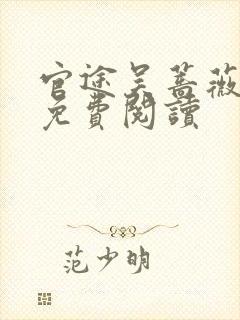 官途吴蔷薇
免費閱讀
范少明